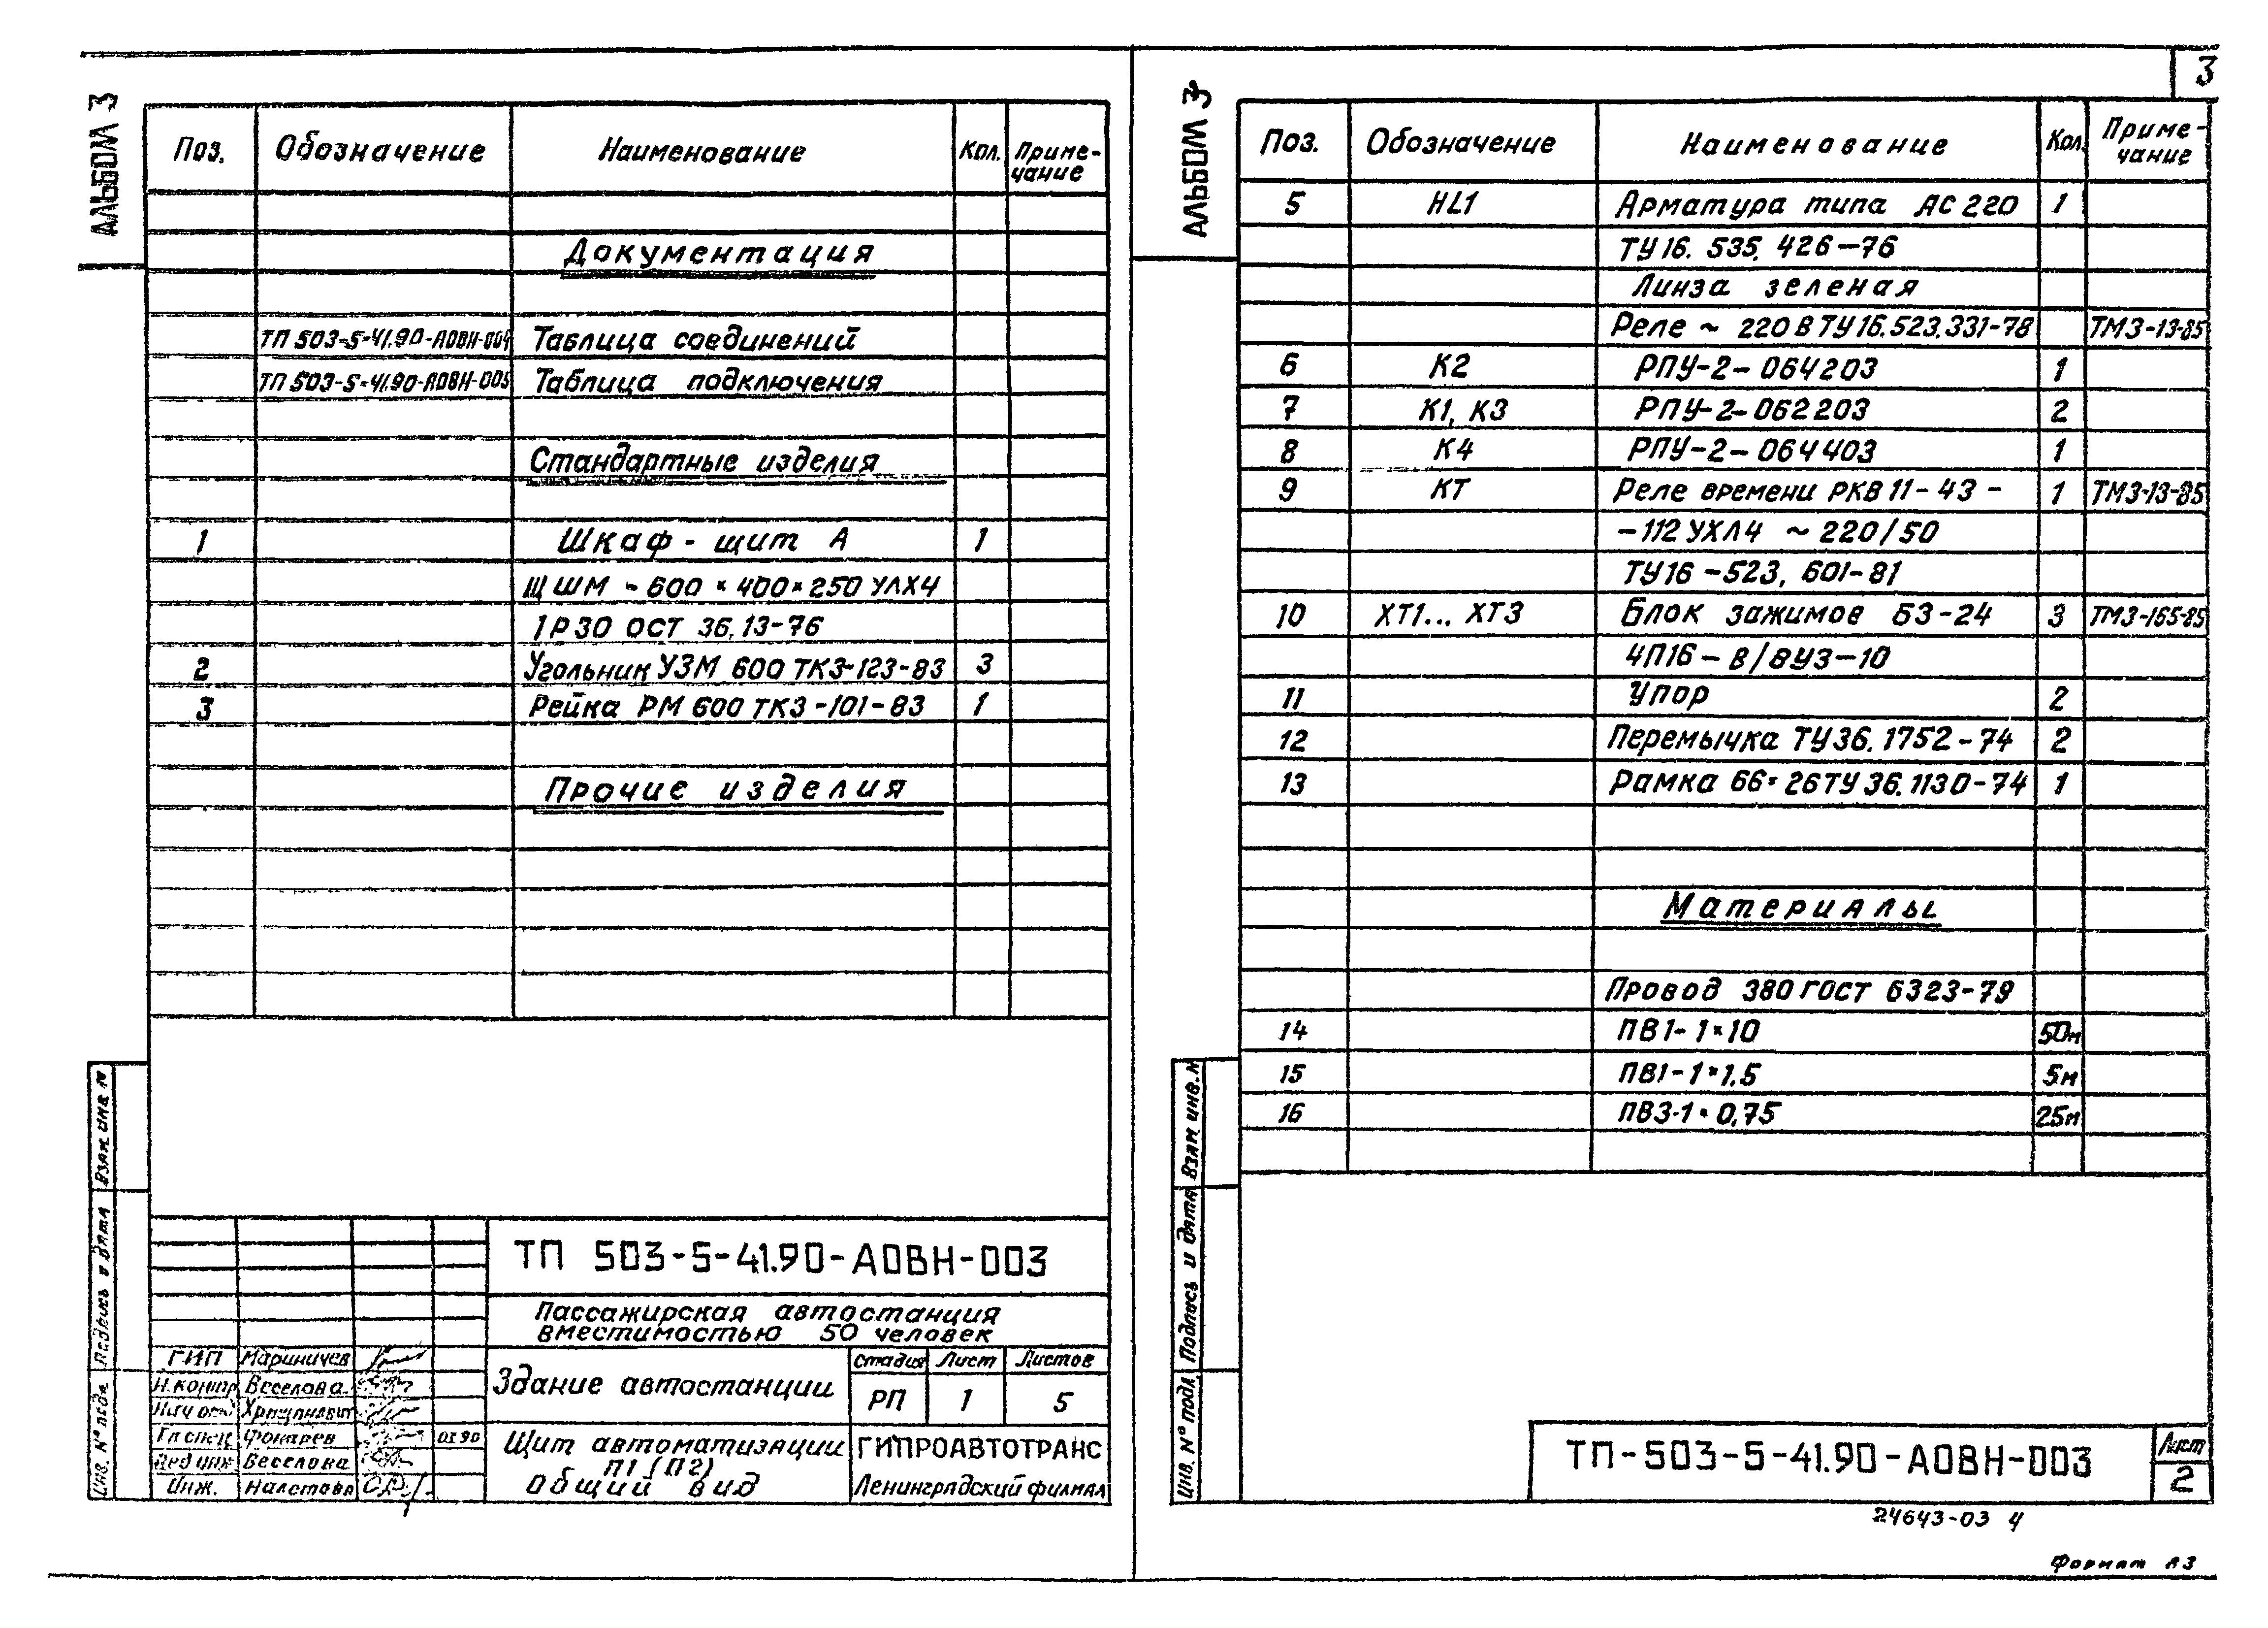 АЛЬБОМ 3
Поз. Обозначение Наименование Кол. Приме-
чание
Документация
ТП 503-5-41.90-АОВН-004 Таблица соединений
ТП 503-5-41.90-АОВН-005 Таблица подключения
Стандартные изделия
1 Шкаф - щит А 1
ЩШМ - 600 × 400 × 250 УЛХ4
1Р30 ОСТ 36.13-76
2 Угольник УЗМ 600 ТК3-123-83 3
3 Рейка РМ 600 ТК3-101-83 1
Прочие изделия
Взам. инв. №
Подпись и дата
Инв. № подл.
ТП 503-5-41.90-АОВН-003
Пассажирская автостанция
вместимостью 50 человек
ГИП Мариничев
Н.контр Веселова
Нач отд
Гл спец Фонарев 03.90
Вед инж Веселова
Инж. Налетова
Здание автостанции
Стадия Лист Листов
РП 1 5
Щит автоматизации
П1 (П2)
Общий вид
ГИПРОАВТОТРАНС
Ленинградский филиал
3
АЛЬБОМ 3
Поз. Обозначение Наименование Кол. Приме-
чание
5 HL1 Арматура типа АС 220 1
ТУ 16. 535. 426-76
Линза зеленая
Реле ~ 220 В ТУ 16.523.331-78 ТМ3-13-85
6 К2 РПУ-2-064203 1
7 К1, К3 РПУ-2-062203 2
8 К4 РПУ-2-064403 1
9 КТ Реле времени РКВ 11-43- 1 ТМ3-13-85
-112 УХЛ4 ~ 220/50
ТУ16-523, 601-81
10 ХТ1... ХТ3 Блок зажимов БЗ-24 3 ТМ3-165-85
4П16-В/ВУ3-10
11 Упор 2
12 Перемычка ТУ36. 1752-74 2
13 Рамка 66×26 ТУ 36. 1130-74 1
Материалы
Провод 380 ГОСТ 6323-79
14 ПВ1-1×10 50м
15 ПВ1-1×1.5 5м
16 ПВ3-1×0,75 25м
Взам инв. №
Подпись и дата
Инв. № подл
ТП-503-5-41.90-АОВН-003
Лист
2
24643-03 4
Формат А3